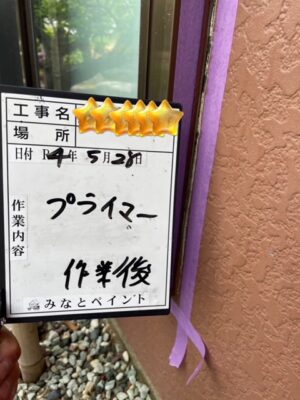 工事名
場所
日付 R4年5月28日
作業内容
プライマー
作業後
みなとペイント